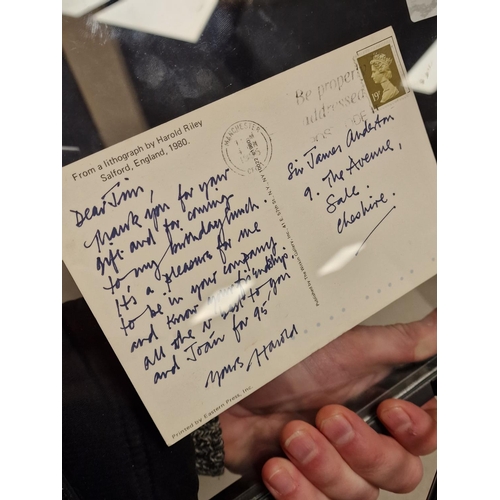 From a lithograph by Harold Riley
Salford, England, 1980.
Dear Jim
thank you for your
gift and for coming
to my birthday lunch.
It's a pleasure for me
to be in your company
and know friendship.
all the v best to you
and Joan for 95
Yours Harold
Printed by Eastern Press, Inc.
Published by The Brown Gallery, Inc.
MANCHESTER
Be properly
addressed
19
Sir James Anderton
9. The Avenue,
Sale.
Cheshire.